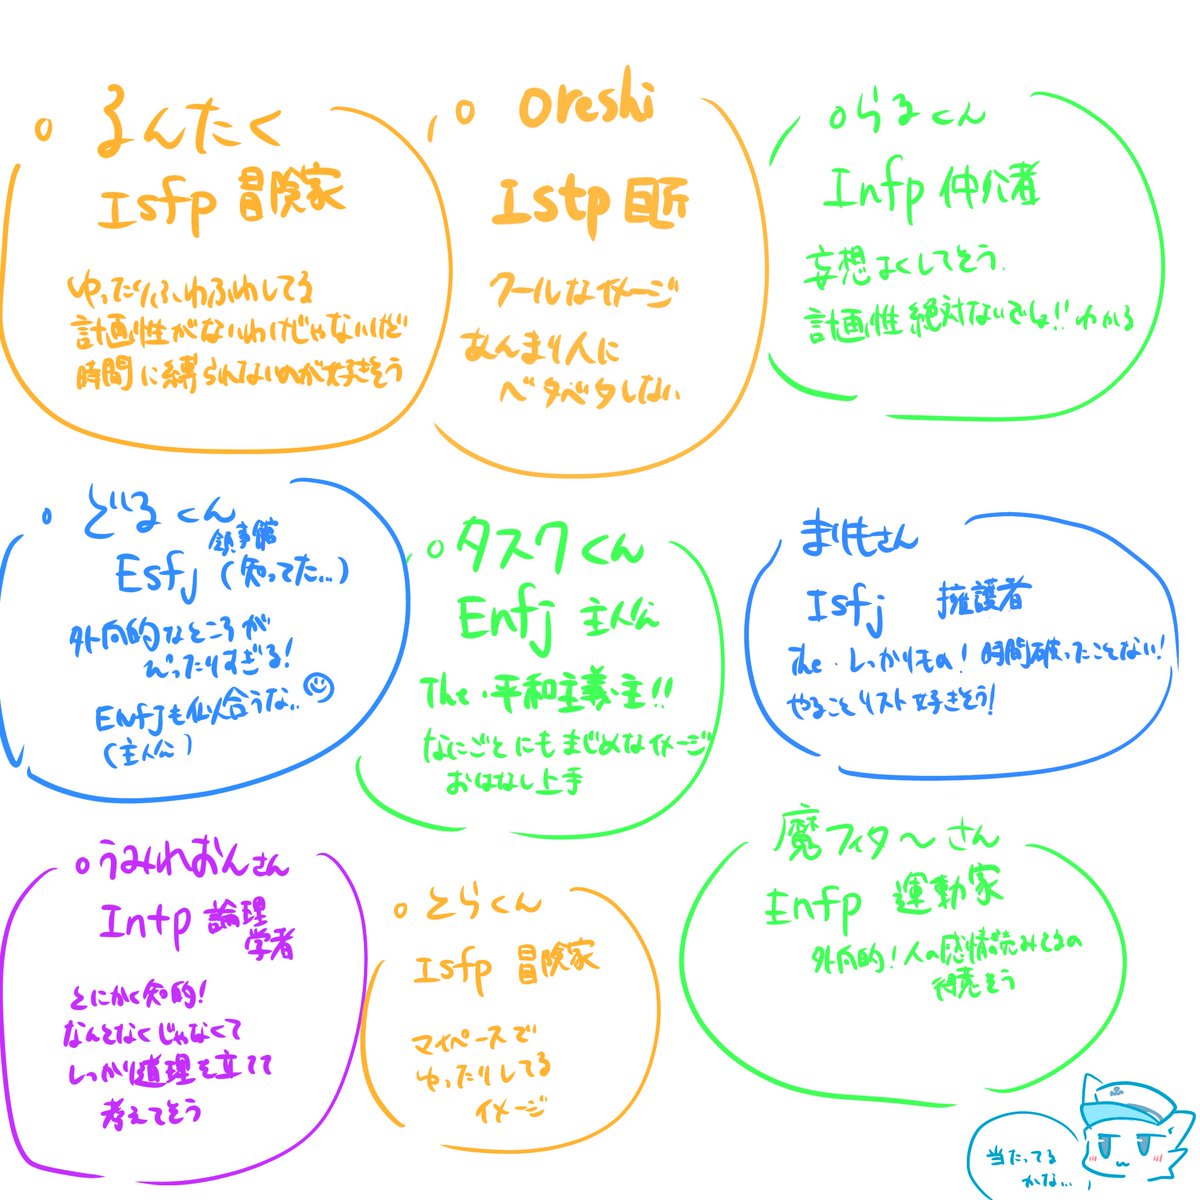 るんたく
Isfp 冒険家
ゆったりふわふわしてる
計画性がないわけじゃないけど
時間に縛られないのが好きそう
oreshi
Istp 巨匠
クールなイメージ
あんまり人に
ベタベタしない
らるくん
Infp 仲介者
妄想よくしてそう.
計画性絶対ないでしょ!! わかる
どるくん
領事館
Esfj (知ってた...)
外向的なところが
ぴったりすぎる!
Enfjも似合うな..
(主人公)
タスクくん
Enfj 主人公
The・平和主義・主!!
なにごとにもまじめなイメージ
おはなし上手
まりもさん
Isfj 擁護者
The・しっかりもの! 時間破ったことない!
やることリスト好きそう!
うみれおんさん
Intp 論理
学者
とにかく知的!
なんとなくじゃなくて
しっかり道理を立てて
考えてそう
とらくん
Isfp 冒険家
マイペースで
ゆったりしてる
イメージ
魔フィタ〜さん
Enfp 運動家
外向的! 人の感情読みとるの
得意そう
当たってる
かな...